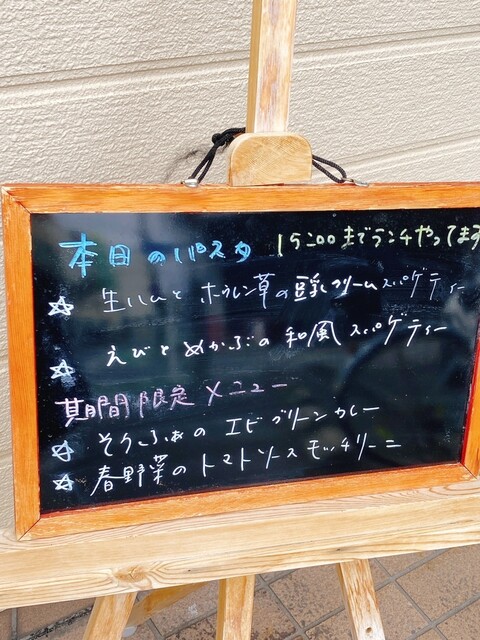 本日のパスタ 15:00までランチやってます
☆ 生ハムとホウレン草の豆乳クリームスパゲティー
☆ えびとめかぶの和風スパゲティー
期間限定メニュー
☆ そうふぁのエビグリーンカレー
☆ 春野菜のトマトソースモッチリーニ